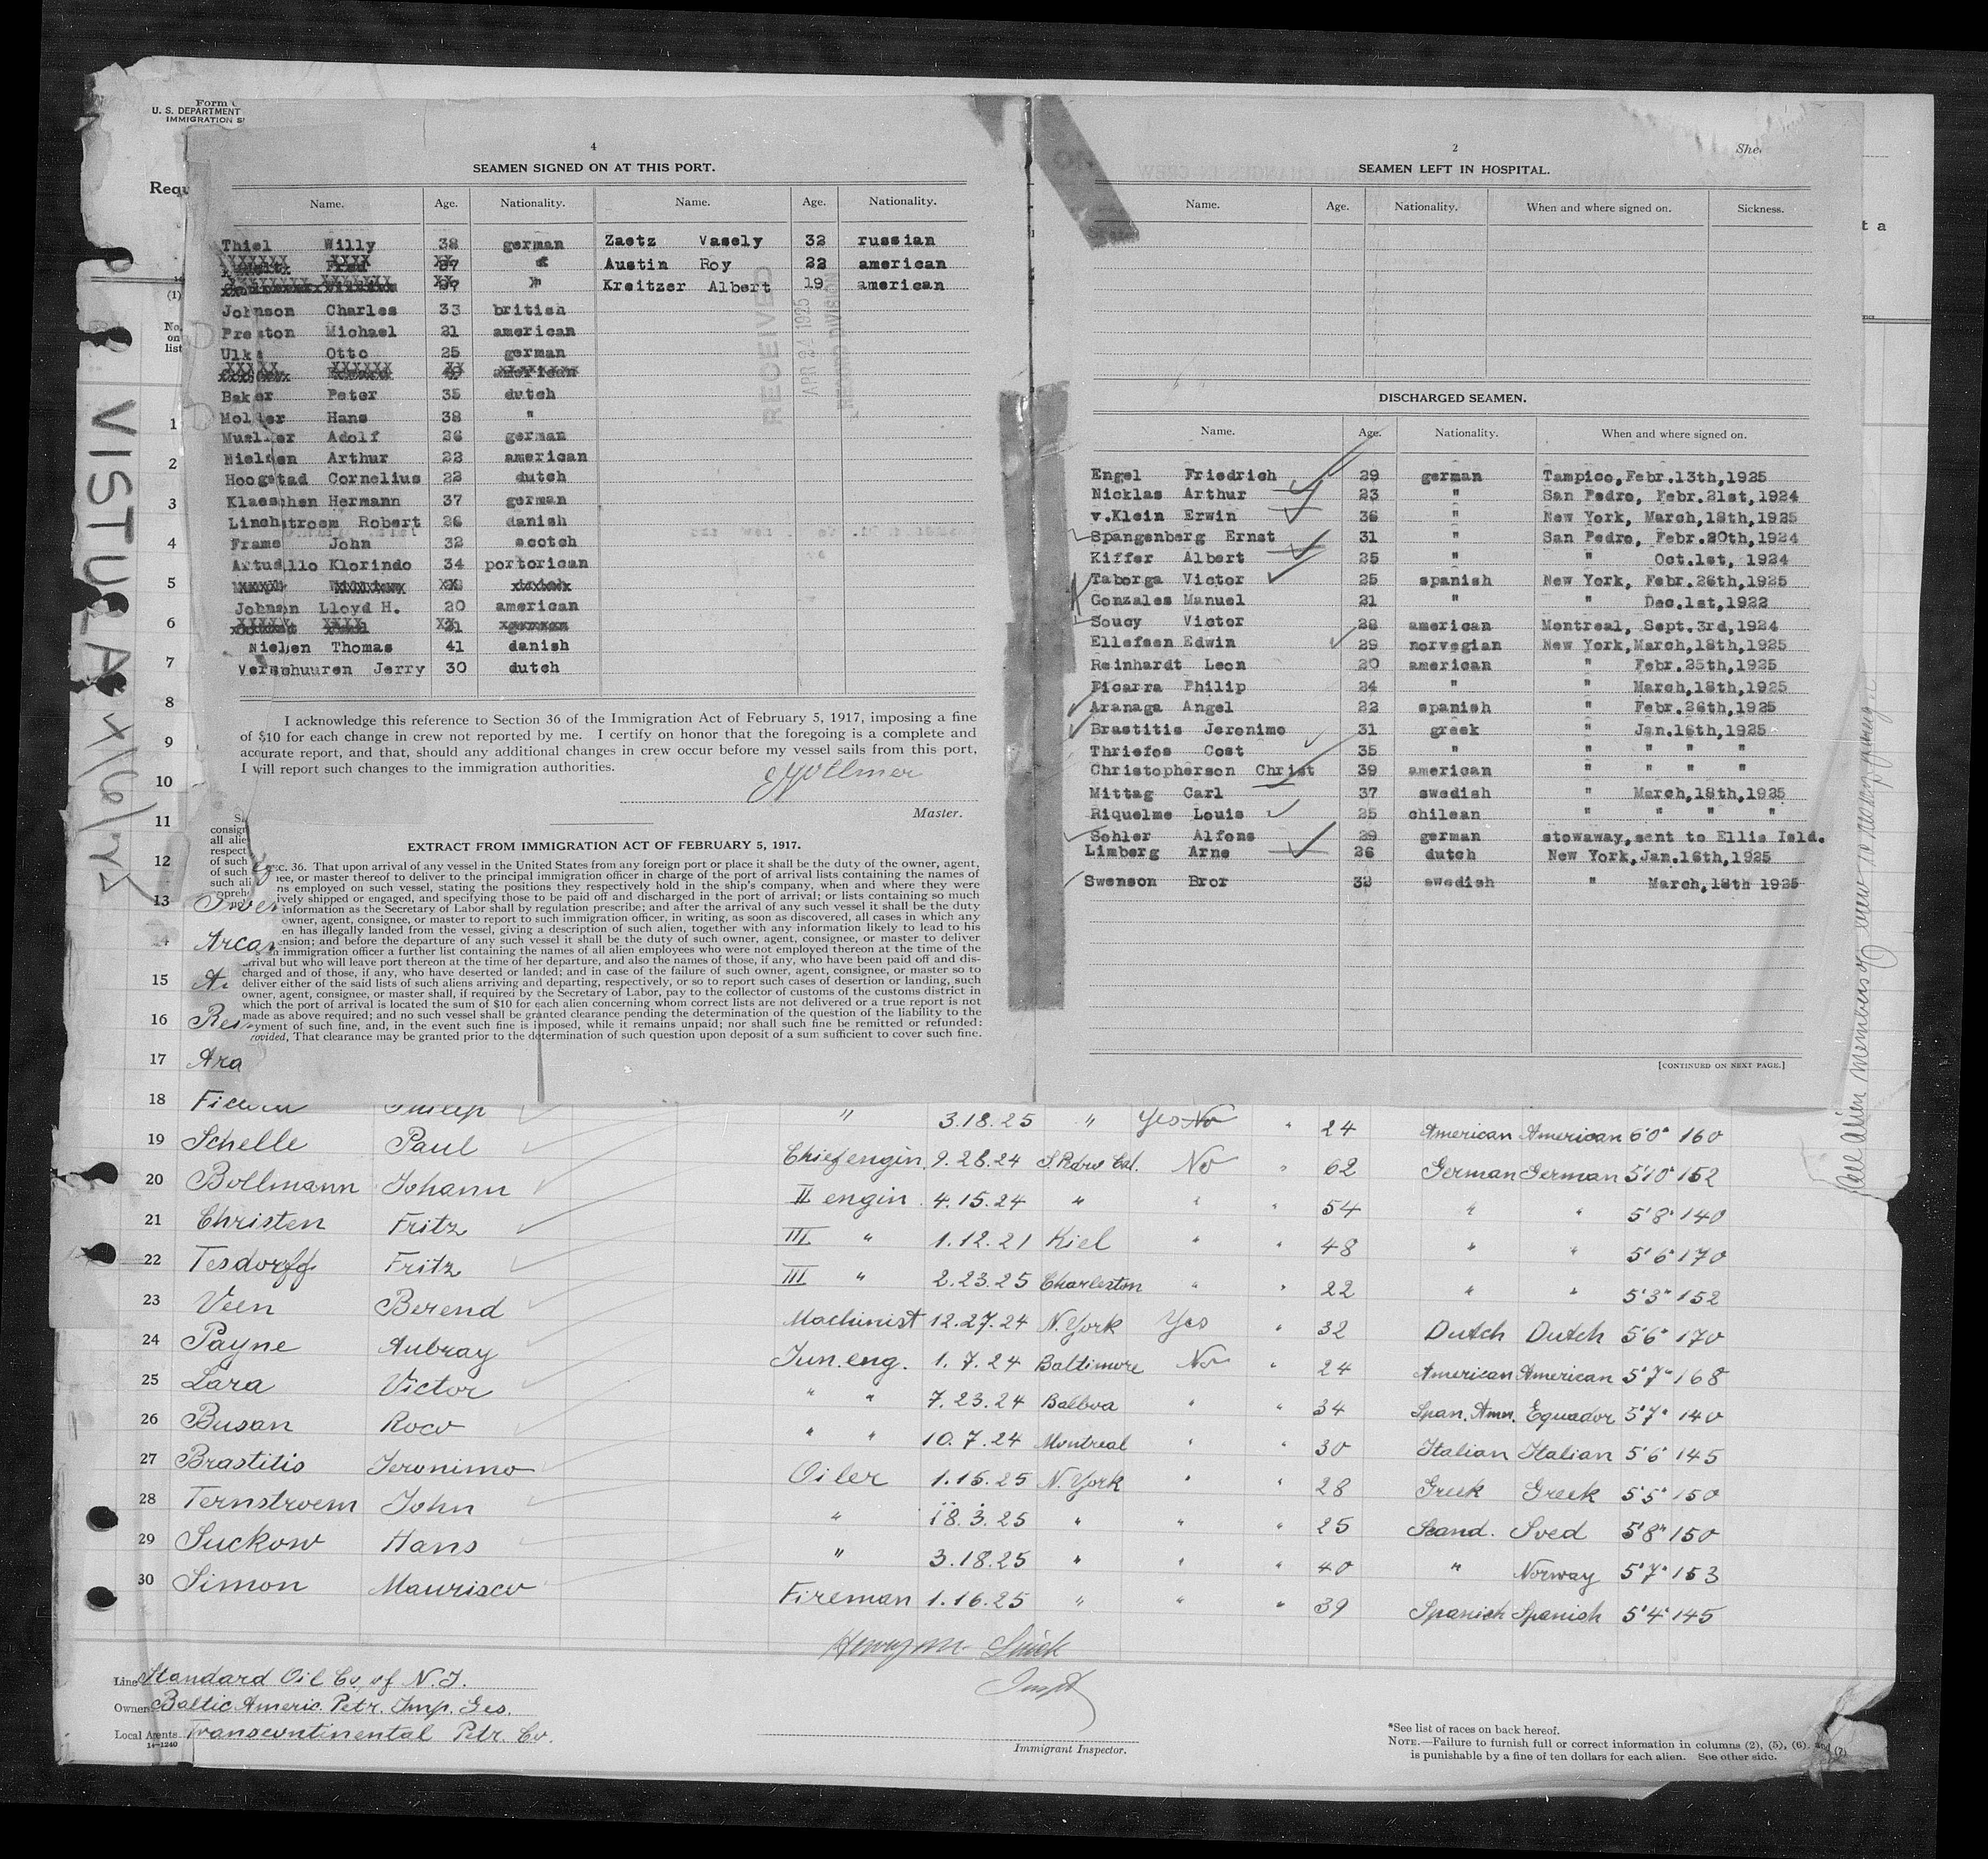 Form
U. S. DEPARTMENT
IMMIGRATION S
Requ
(1)
No.
on
list
VISTULA 4/6/25
4
SEAMEN SIGNED ON AT THIS PORT.
Name. Age. Nationality. Name. Age. Nationality.
Thiel Willy 38 german Zaetz Vasely 32 russian
Austin Roy 22 american
Kreitzer Albert 19 american
Johnson Charles 33 british
Preston Michael 21 american
Ulke Otto 25 german
Baker Peter 35 dutch
Moller Hans 38 "
Mueller Adolf 26 german
Nielsen Arthur 22 american
Hoogstad Cornelius 22 dutch
Klaeschen Hermann 37 german
Linchstroem Robert 26 danish
Frame John 32 scotch
Artudillo Klorindo 34 portorican
Johnsn Lloyd H. 20 american
Nielsen Thomas 41 danish
Verschuuren Jerry 30 dutch
RECEIVED
APR 24 1925
RECORD DIVISION
I acknowledge this reference to Section 36 of the Immigration Act of February 5, 1917, imposing a fine
of $10 for each change in crew not reported by me. I certify on honor that the foregoing is a complete and
accurate report, and that, should any additional changes in crew occur before my vessel sails from this port,
I will report such changes to the immigration authorities.
Vollmer
Master.
EXTRACT FROM IMMIGRATION ACT OF FEBRUARY 5, 1917.
Sec. 36. That upon arrival of any vessel in the United States from any foreign port or place it shall be the duty of the owner, agent,
ee, or master thereof to deliver to the principal immigration officer in charge of the port of arrival lists containing the names of
ns employed on such vessel, stating the positions they respectively hold in the ship's company, when and where they were
ively shipped or engaged, and specifying those to be paid off and discharged in the port of arrival; or lists containing so much
information as the Secretary of Labor shall by regulation prescribe; and after the arrival of any such vessel it shall be the duty
owner, agent, consignee, or master to report to such immigration officer, in writing, as soon as discovered, all cases in which any
en has illegally landed from the vessel, giving a description of such alien, together with any information likely to lead to his
ension; and before the departure of any such vessel it shall be the duty of such owner, agent, consignee, or master to deliver
an immigration officer a further list containing the names of all alien employees who were not employed thereon at the time of the
arrival but who will leave port thereon at the time of her departure, and also the names of those, if any, who have been paid off and dis-
charged and of those, if any, who have deserted or landed; and in case of the failure of such owner, agent, consignee, or master so to
deliver either of the said lists of such aliens arriving and departing, respectively, or so to report such cases of desertion or landing, such
owner, agent, consignee, or master shall, if required by the Secretary of Labor, pay to the collector of customs of the customs district in
which the port of arrival is located the sum of $10 for each alien concerning whom correct lists are not delivered or a true report is not
made as above required; and no such vessel shall be granted clearance pending the determination of the question of the liability to the
yment of such fine, and, in the event such fine is imposed, while it remains unpaid; nor shall such fine be remitted or refunded:
rovided, That clearance may be granted prior to the determination of such question upon deposit of a sum sufficient to cover such fine.
2
She
SEAMEN LEFT IN HOSPITAL.
Name. Age. Nationality. When and where signed on. Sickness.
DISCHARGED SEAMEN.
Name. Age. Nationality. When and where signed on.
Engel Friedrich 29 german Tampico,Febr.13th,1925
Nicklas Arthur 23 " San Pedro, Febr.21st,1924
v.Klein Erwin 36 " New York, March,18th,1925
Spangenberg Ernst 31 " San Pedro, Febr.20th,1924
Kiffer Albert 25 " " Oct.1st, 1924
Taborga Victor 25 spanish New York, Febr.26th,1925
Gonzales Manuel 21 " " Dec.1st,1922
Soucy Victor 28 american Montreal, Sept.3rd,1924
Ellefsen Edwin 29 norvegian New York,March,18th,1925
Reinhardt Leon 20 american " Febr.25th,1925
Ficarra Philip 24 " " March,18th,1925
Aranaga Angel 22 spanish " Febr.26th,1925
Brastitis Jeronimo 31 greek " Jan.16th,1925
Thriefos Cost 35 " " " " "
Christopherson Christ 39 american " " " "
Mittag Carl 37 swedish " March,18th,1925
Riquelme Louis 25 chilean " " " "
Sohler Alfons 29 german stowaway,sent to Ellis Isld.
Limberg Arne 26 dutch New York,Jan.16th,1925
Swenson Bror 32 swedish " March,18th 1925
[CONTINUED ON NEXT PAGE.]
1
2
3
4
5
6
7
8
9
10
11
12
13
14 Arca
15
16
17 Ara
18 Philip " 3.18.25 " Yes No " 24 American American 6'0" 160
19 Schelle Paul Chief engin. 9.28.24 S.Pedro Cal. No " 62 German German 5'10" 152
20 Bollmann Johann II engin. 4.15.24 " " " 54 " " 5'8" 140
21 Christen Fritz III " 1.12.21 Kiel " " 48 " " 5'6" 170
22 Tesdorff Fritz III " 2.23.25 Charleston " " 22 " " 5'3" 152
23 Veen Berend Machinist 12.27.24 N.York Yes " 32 Dutch Dutch 5'6" 170
24 Payne Aubray Jun. eng. 1.7.24 Baltimore No " 24 American American 5'7" 168
25 Lara Victor " " 7.23.24 Balboa " " 34 Span. Amer. Equador 5'7" 140
26 Busan Roco " " 10.7.24 Montreal " " 30 Italian Italian 5'6" 145
27 Brastitis Jeronimo Oiler 1.15.25 N.York " " 28 Greek Greek 5'5" 150
28 Ternstroem John " 18.3.25 " " " 25 Scand. Sved 5'8" 150
29 Suckow Hans " 3.18.25 " " " 40 " Norway 5'7" 153
30 Simon Maurisco Fireman 1.16.25 " " " 39 Spanish Spanish 5'4" 145
Line Standard Oil Co. of N.J.
Owners Baltic Americ. Petr. Imp. Ges.
Local Agents Transcontinental Petr. Co.
14-1240
Immigrant Inspector.
*See list of races on back hereof.
NOTE.—Failure to furnish full or correct information in columns (2), (5), (6), and (7)
is punishable by a fine of ten dollars for each alien. See other side.